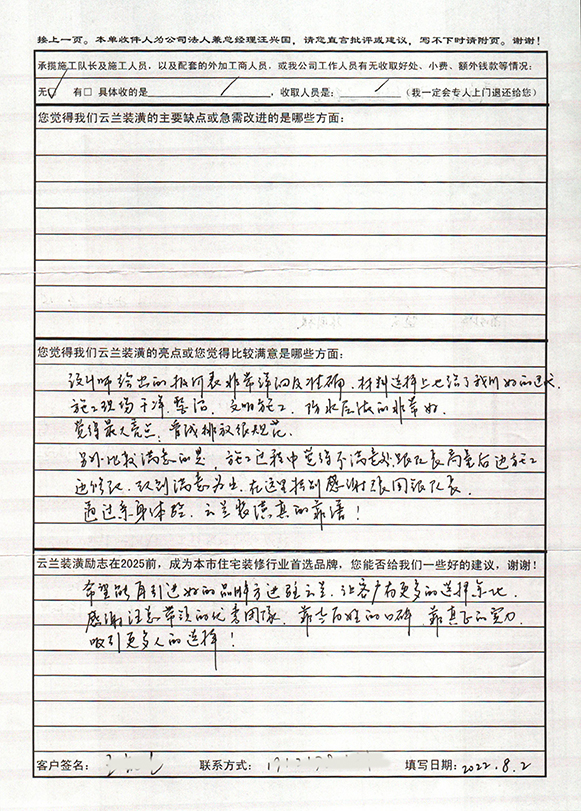 接上一页。本单收件人为公司法人兼总经理汪兴国，请您直言批评或建议，写不下时请附页。谢谢！
承揽施工队长及施工人员，以及配套的外加工商人员，或我公司工作人员有无收取好处、小费、额外钱款等情况：
无☑ 有□ 具体收的是 ，收取人员是： （我一定会专人上门退还给您）
您觉得我们云兰装潢的主要缺点或急需改进的是哪些方面：
您觉得我们云兰装潢的亮点或您觉得比较满意是哪些方面：
设计师给出的报价表非常详细及准确，材料选择上也给了我们好的建议
施工现场干净、整洁，文明施工，防水应做的非常好
觉得最大亮点，管线排放很规范。
另外比较满意的是，施工过程中觉得不满意处跟队长沟通后边施工
边修改，改到满意为止，在这里特别感谢张国银队长
通过亲身体验，云兰装潢真的靠谱！
云兰装潢励志在2025前，成为本市住宅装修行业首选品牌，您能否给我们一些好的建议，谢谢！
希望能再引进好的品牌方进驻云兰，让客户有更多的选择
感谢汪总带领的优秀团队，靠老百姓的口碑，靠真正的实力
吸引更多人的选择！
客户签名： 联系方式： 填写日期：2022.8.2